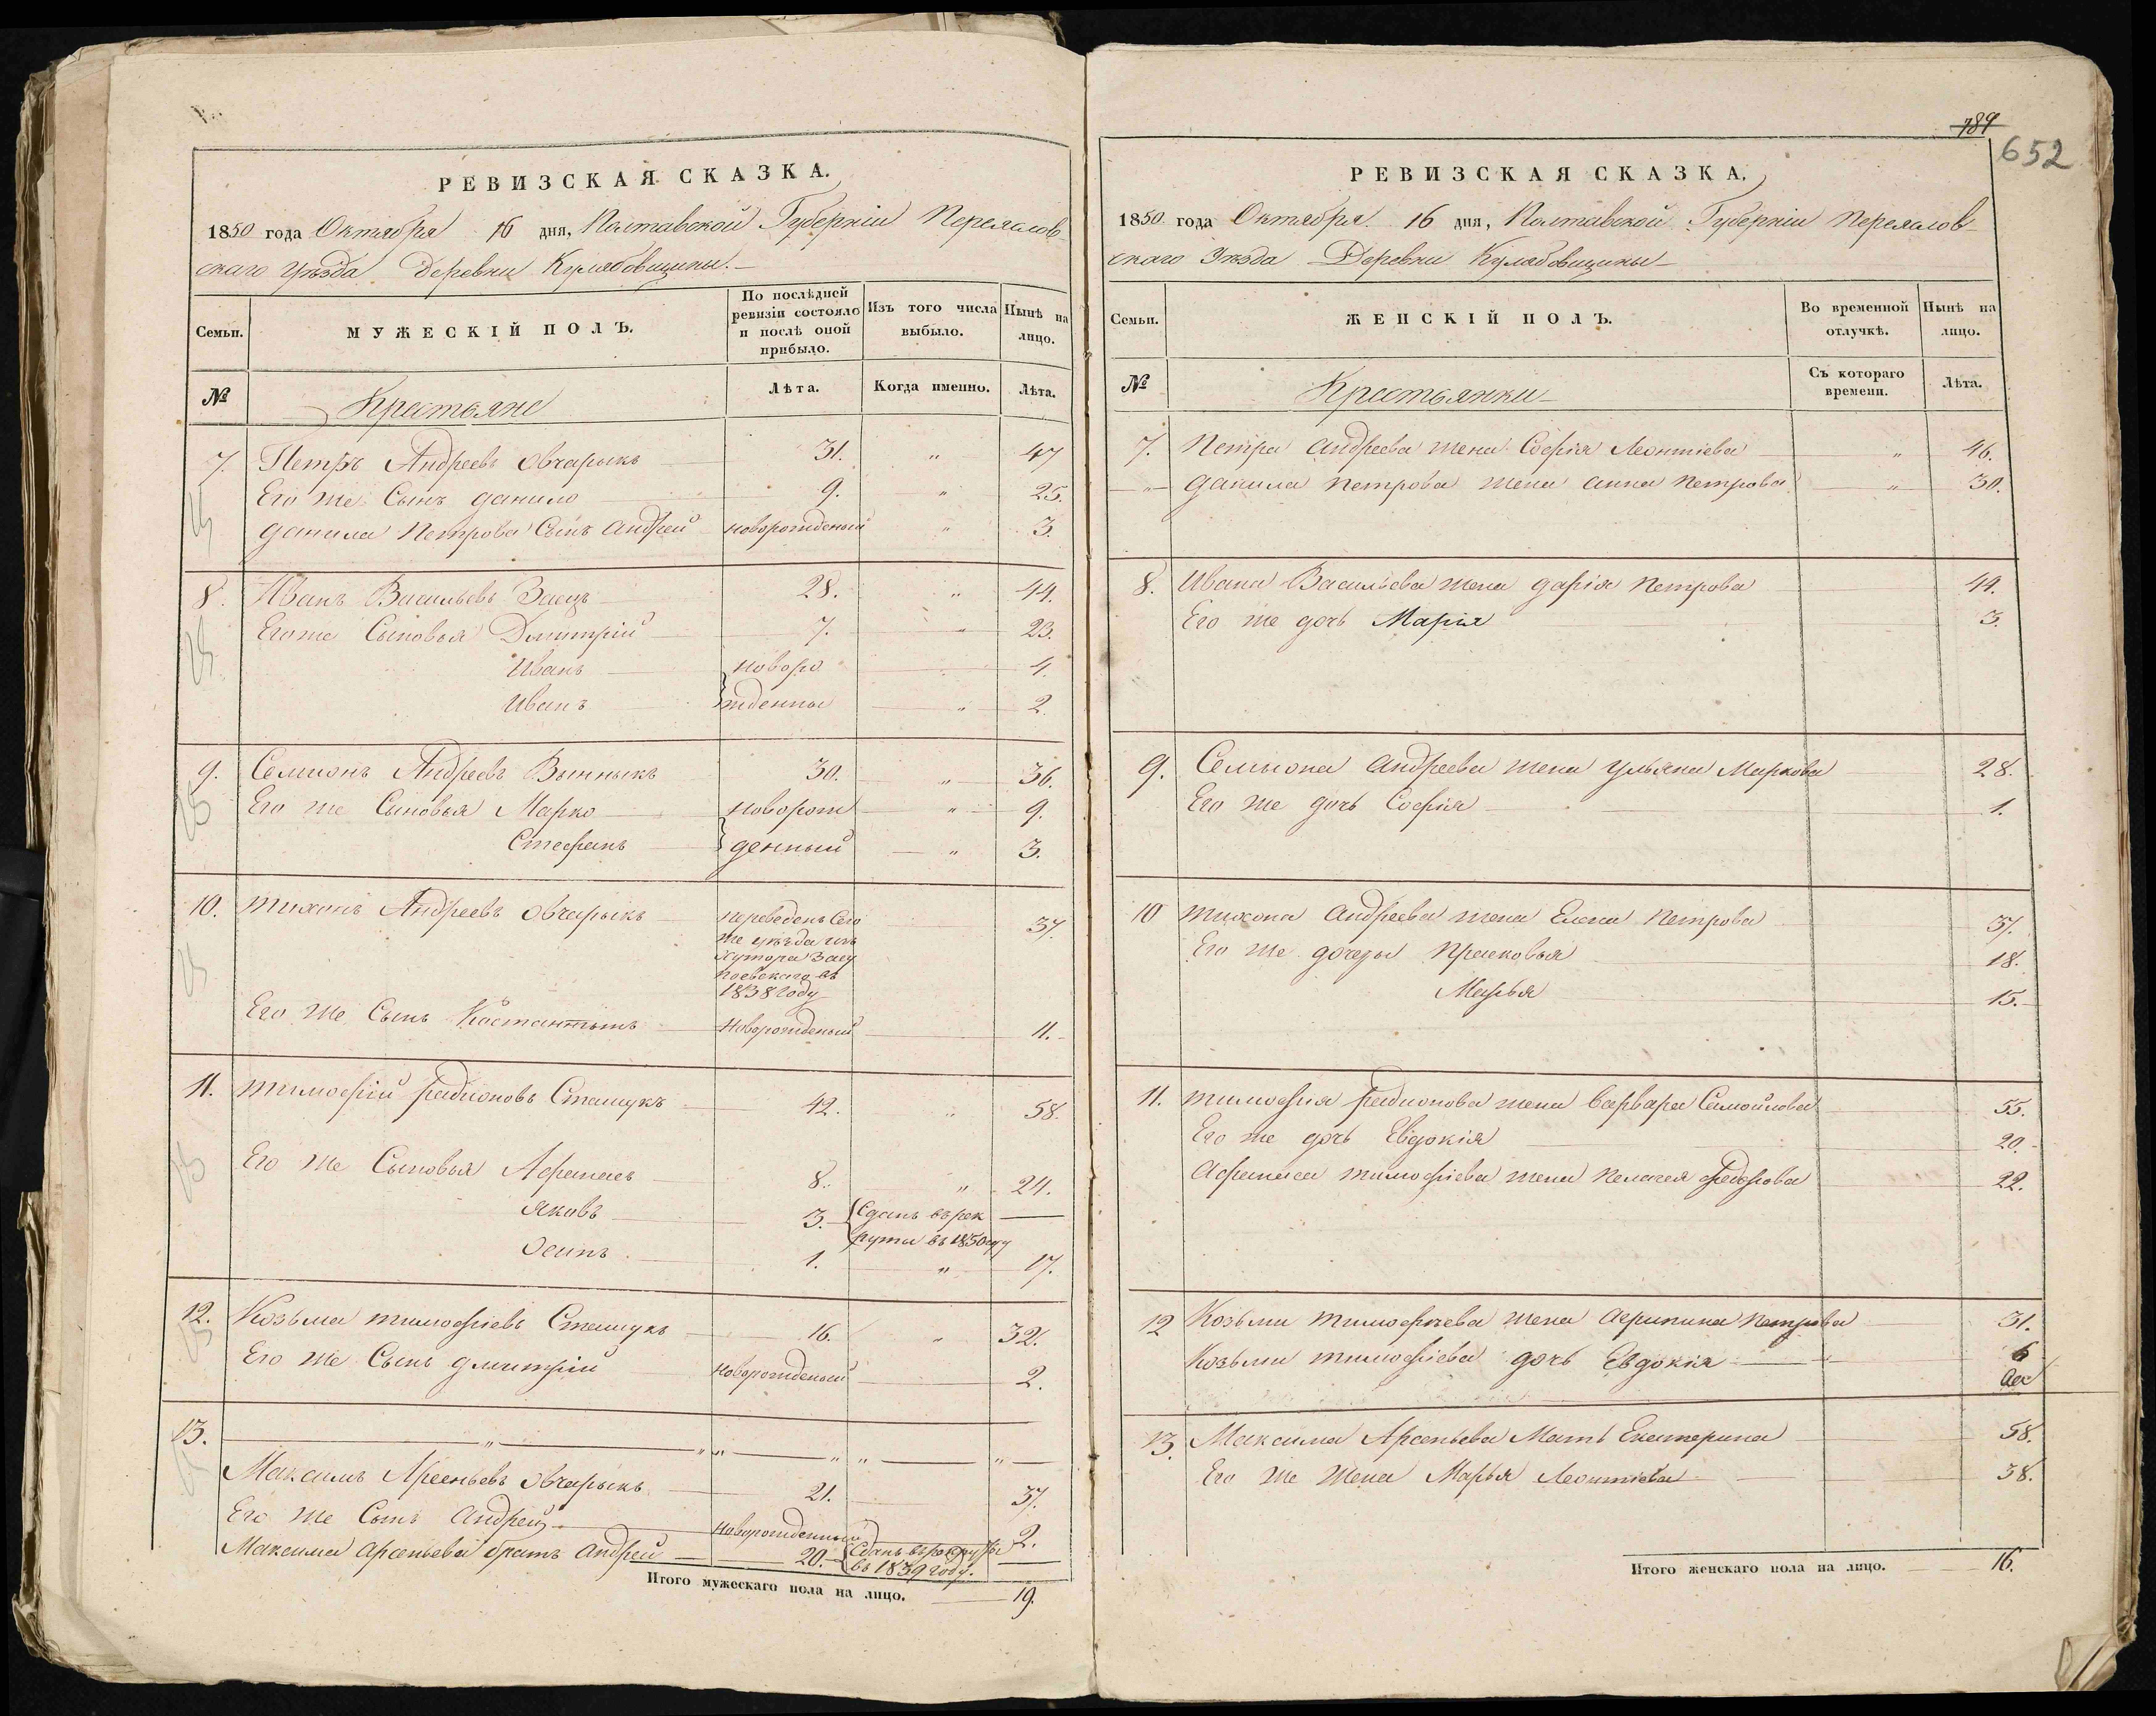 РЕВИЗСКАЯ СКАЗКА.
1850 года Октября 16 дня, Полтавской Губерніи Переяслов-
скаго уѣзда Деревни Кулябовщины.
Семьи. МУЖЕСКІЙ ПОЛЪ. По послѣдней ревизіи состояло и послѣ оной прибыло. Изъ того числа выбыло. Нынѣ на лицо.
№ Крестьяне Лѣта. Когда именно. Лѣта.
7. Петръ Андреевъ Овчарыкъ 31. " 47
Его же Сынъ данило 9. " 25.
данила Петрова Сынъ андрей новорожденый " 3.
8. Иванъ Васильевъ Заецъ 28. " 44.
Его же Сыновья Дмитрій 7. " 23.
Иванъ новоро 4.
Иванъ жденны " 2.
9. Семионъ Андреевъ Винныкъ 30. " 36.
Его же Сыновья Марко новорож " 9.
Стефанъ денный " 3.
10. тихонъ Андреевъ Овчарыкъ переведенъ Сего 37.
же уезда изъ
хутора Засу
поевскаго въ
1838 году
Его же Сынъ Костантынъ Новорожденый 11.
11. тимофій радионовъ Сташукъ 42. " 58.
Его же Сыновья Афанась 8. " 24.
яковъ 3. Сданъ въ рек
руты въ 1850 году
Осипъ 1. " 17.
12. Козьма тимофіевъ Сташукъ 16. " 32.
Его же Сынъ дмитрій Новорожденый 2.
13. " " " " " "
Максимъ Арсеньевъ Овчарыкъ 21. 37.
Его же Сынъ андрей Новорожденный 2.
Максима арсеньева братъ андрей 20. Сданъ въ рекруты
въ 1839 году.
Итого мужескаго пола на лицо. 19.
789
652
РЕВИЗСКАЯ СКАЗКА.
1850 года Октября 16 дня, Полтавской Губерніи Переяслов-
скаго Уезда Деревни Кулябовщины
Семьи. ЖЕНСКІЙ ПОЛЪ. Во временной отлучкѣ. Нынѣ на лицо.
№ Крестьянки Съ котораго времени. Лѣта.
7. Петра андреева жена Софія Леонтіева " 46.
" данила петрова жена анна петрова " 30.
8. Ивана Васильева жена дарія петрова 44.
Его же дочь Марія 3.
9. Семиона андреева жена ульяна Маркова 28.
Его же дочь Софія 1.
10 тихона андреева жена Елена петрова 37.
Его же дочеры прасковья 18.
Марья 15.
11. тимофия радионова жена варвара Самойлова 55.
Его же дочь Евдокія 20.
Афанаса тимофіева жена пелагея федорова 22.
12 Козьми тимофіева жена агрипина петрова 31.
Козьми тимофіева дочь Евдокія " 6
13. Максима Арсеньева Мать Екатерина 58.
Его же жена Марья Леонтіева 38.
Итого женскаго пола на лицо. 16.